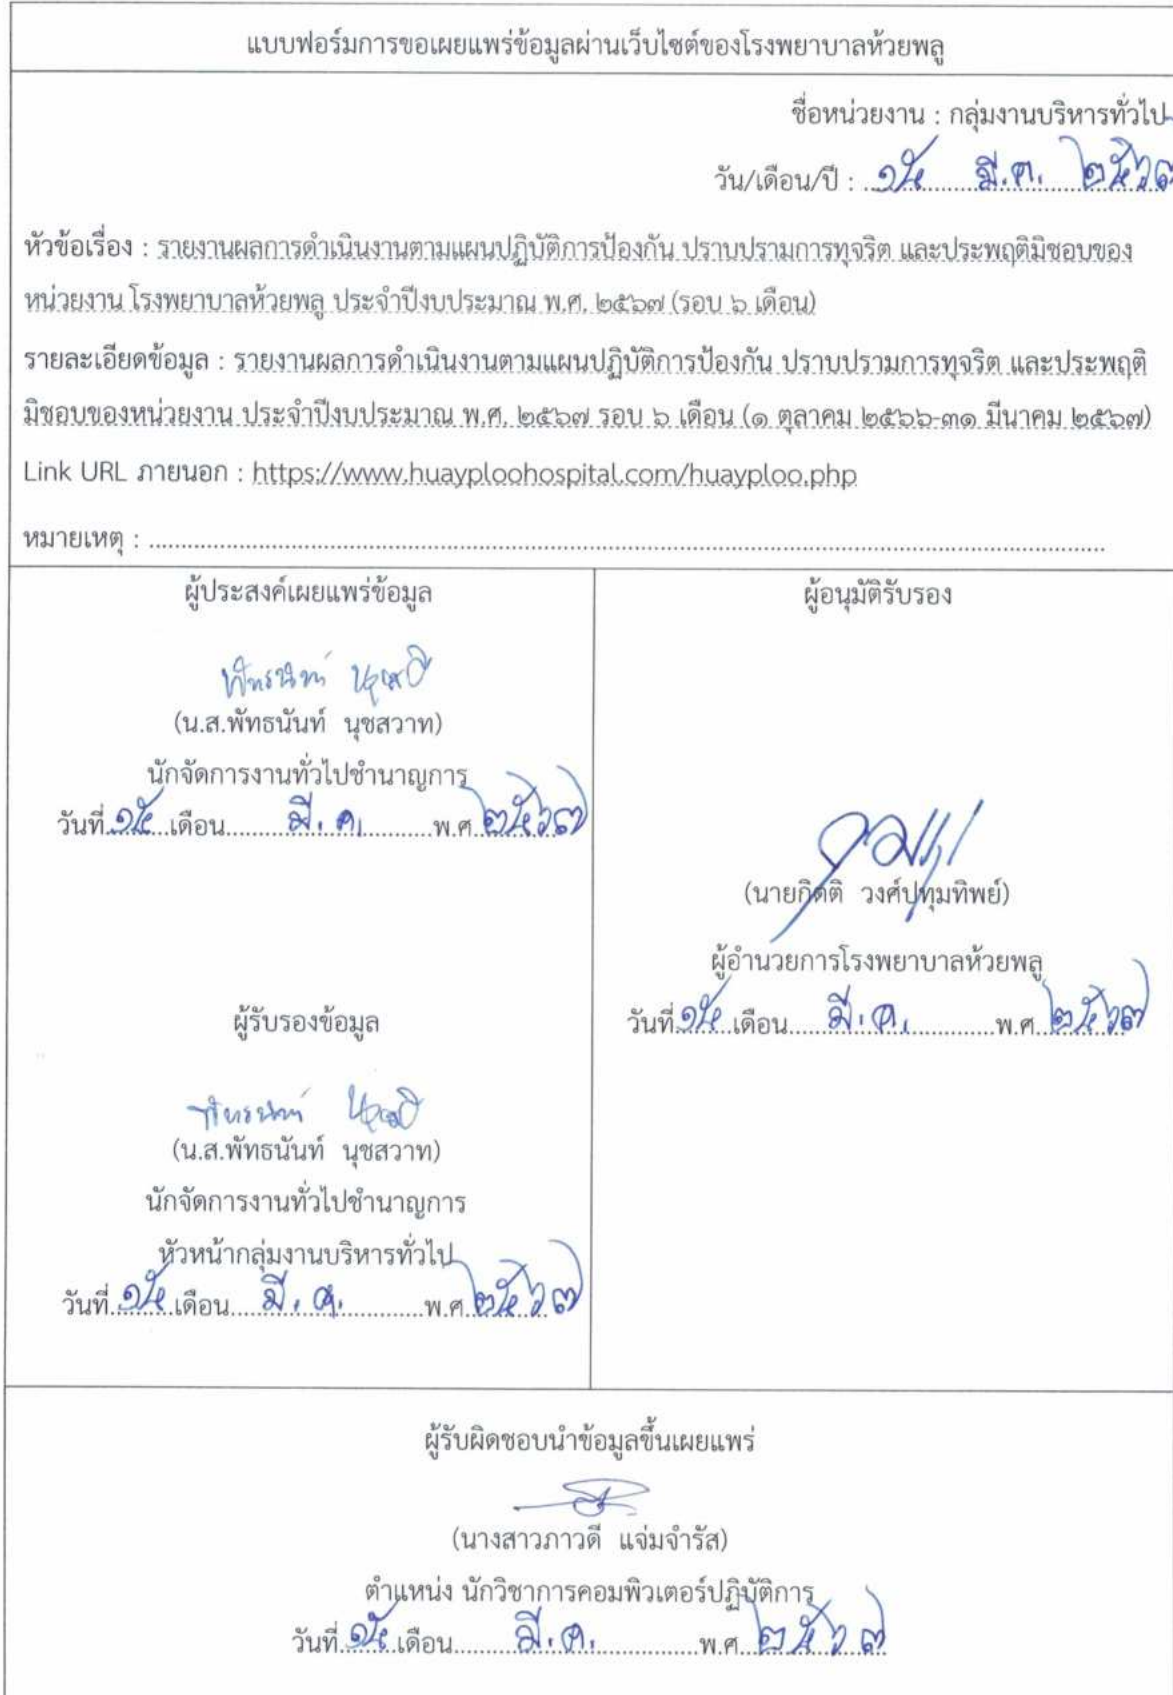 แบบฟอร์มการขอเผยแพร่ข้อมูลผ่านเว็บไซต์ของโรงพยาบาลห้วยพลู
ชื่อหน่วยงาน : กลุ่มงานบริหารทั่วไป
วัน/เดือน/ปี : ๑๕ มี.ค. ๒๕๖๗
หัวข้อเรื่อง : รายงานผลการดำเนินงานตามแผนปฏิบัติการป้องกัน ปราบปรามการทุจริต และประพฤติมิชอบของ
หน่วยงาน โรงพยาบาลห้วยพลู ประจำปีงบประมาณ พ.ศ. ๒๕๖๗ (รอบ ๖ เดือน)
รายละเอียดข้อมูล : รายงานผลการดำเนินงานตามแผนปฏิบัติการป้องกัน ปราบปรามการทุจริต และประพฤติ
มิชอบของหน่วยงาน ประจำปีงบประมาณ พ.ศ. ๒๕๖๗ รอบ ๖ เดือน (๑ ตุลาคม ๒๕๖๖-๓๑ มีนาคม ๒๕๖๗)
Link URL ภายนอก : https://www.huayploohospital.com/huayploo.php
หมายเหตุ :
ผู้ประสงค์เผยแพร่ข้อมูล
พัทธนันท์
(น.ส.พัทธนันท์ นุชสวาท)
นักจัดการงานทั่วไปชำนาญการ
วันที่ ๑๕ เดือน มี.ค. พ.ศ ๒๕๖๗
ผู้รับรองข้อมูล
พัทธนันท์
(น.ส.พัทธนันท์ นุชสวาท)
นักจัดการงานทั่วไปชำนาญการ
หัวหน้ากลุ่มงานบริหารทั่วไป
วันที่ ๑๕ เดือน มี.ค. พ.ศ ๒๕๖๗
ผู้อนุมัติรับรอง
(นายกิตติ วงศ์ปทุมทิพย์)
ผู้อำนวยการโรงพยาบาลห้วยพลู
วันที่ ๑๕ เดือน มี.ค. พ.ศ ๒๕๖๗
ผู้รับผิดชอบนำข้อมูลขึ้นเผยแพร่
(นางสาวภาวดี แจ่มจำรัส)
ตำแหน่ง นักวิชาการคอมพิวเตอร์ปฏิบัติการ
วันที่ ๑๕ เดือน มี.ค. พ.ศ ๒๕๖๗